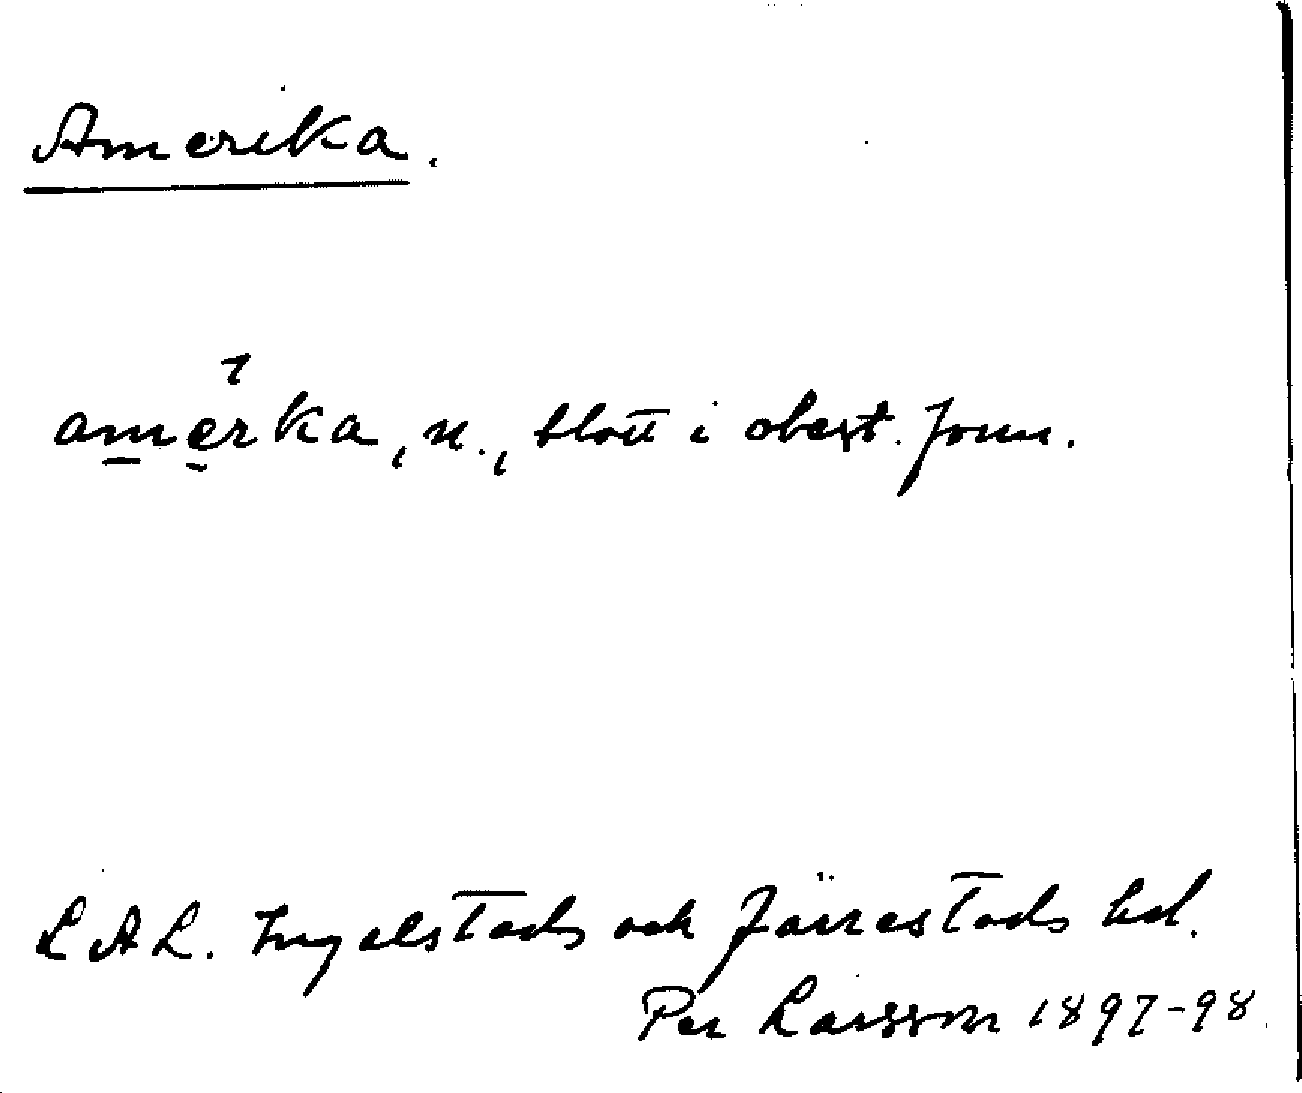 Amerika.
amerka, n., blott i obest. form.
LAL. Ingelstads och Järrestads hd.
Per Larsson 1897-98